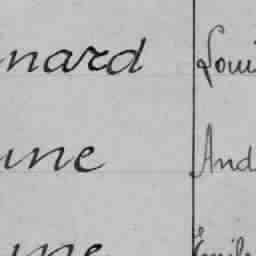 nard Loui
une And
une Emile